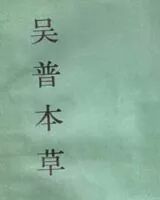 吴普本草